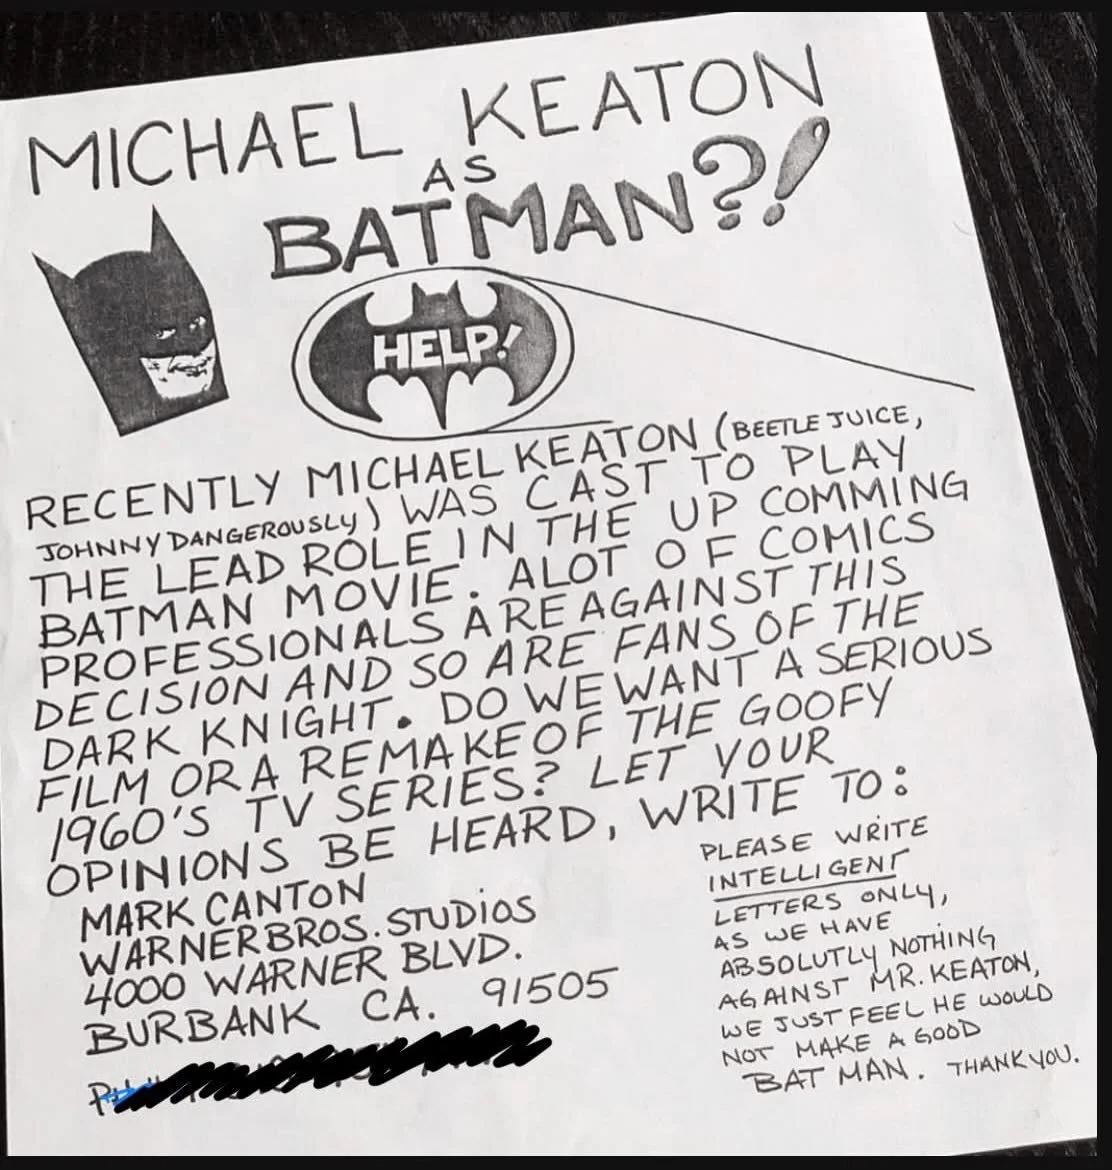 MICHAEL KEATON
AS
BATMAN?!
HELP!
RECENTLY MICHAEL KEATON (BEETLE JUICE,
JOHNNY DANGEROUSLY) WAS CAST TO PLAY
THE LEAD ROLE IN THE UP COMMING
BATMAN MOVIE. ALOT OF COMICS
PROFESSIONALS ARE AGAINST THIS
DECISION AND SO ARE FANS OF THE
DARK KNIGHT. DO WE WANT A SERIOUS
FILM OR A REMAKE OF THE GOOFY
1960'S TV SERIES? LET YOUR
OPINIONS BE HEARD, WRITE TO:
MARK CANTON
WARNER BROS. STUDIOS
4000 WARNER BLVD.
BURBANK CA. 91505
PLEASE WRITE
INTELLIGENT
LETTERS ONLY,
AS WE HAVE
ABSOLUTLY NOTHING
AGAINST MR. KEATON,
WE JUST FEEL HE WOULD
NOT MAKE A GOOD
BAT MAN. THANK YOU.